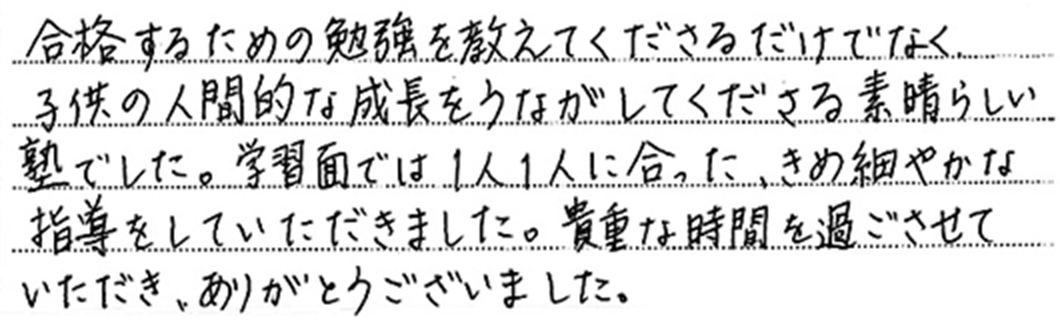 合格するための勉強を教えてくださるだけでなく、
子供の人間的な成長をうながしてくださる素晴らしい
塾でした。学習面では1人1人に合った、きめ細やかな
指導をしていただきました。貴重な時間を過ごさせて
いただき、ありがとうございました。